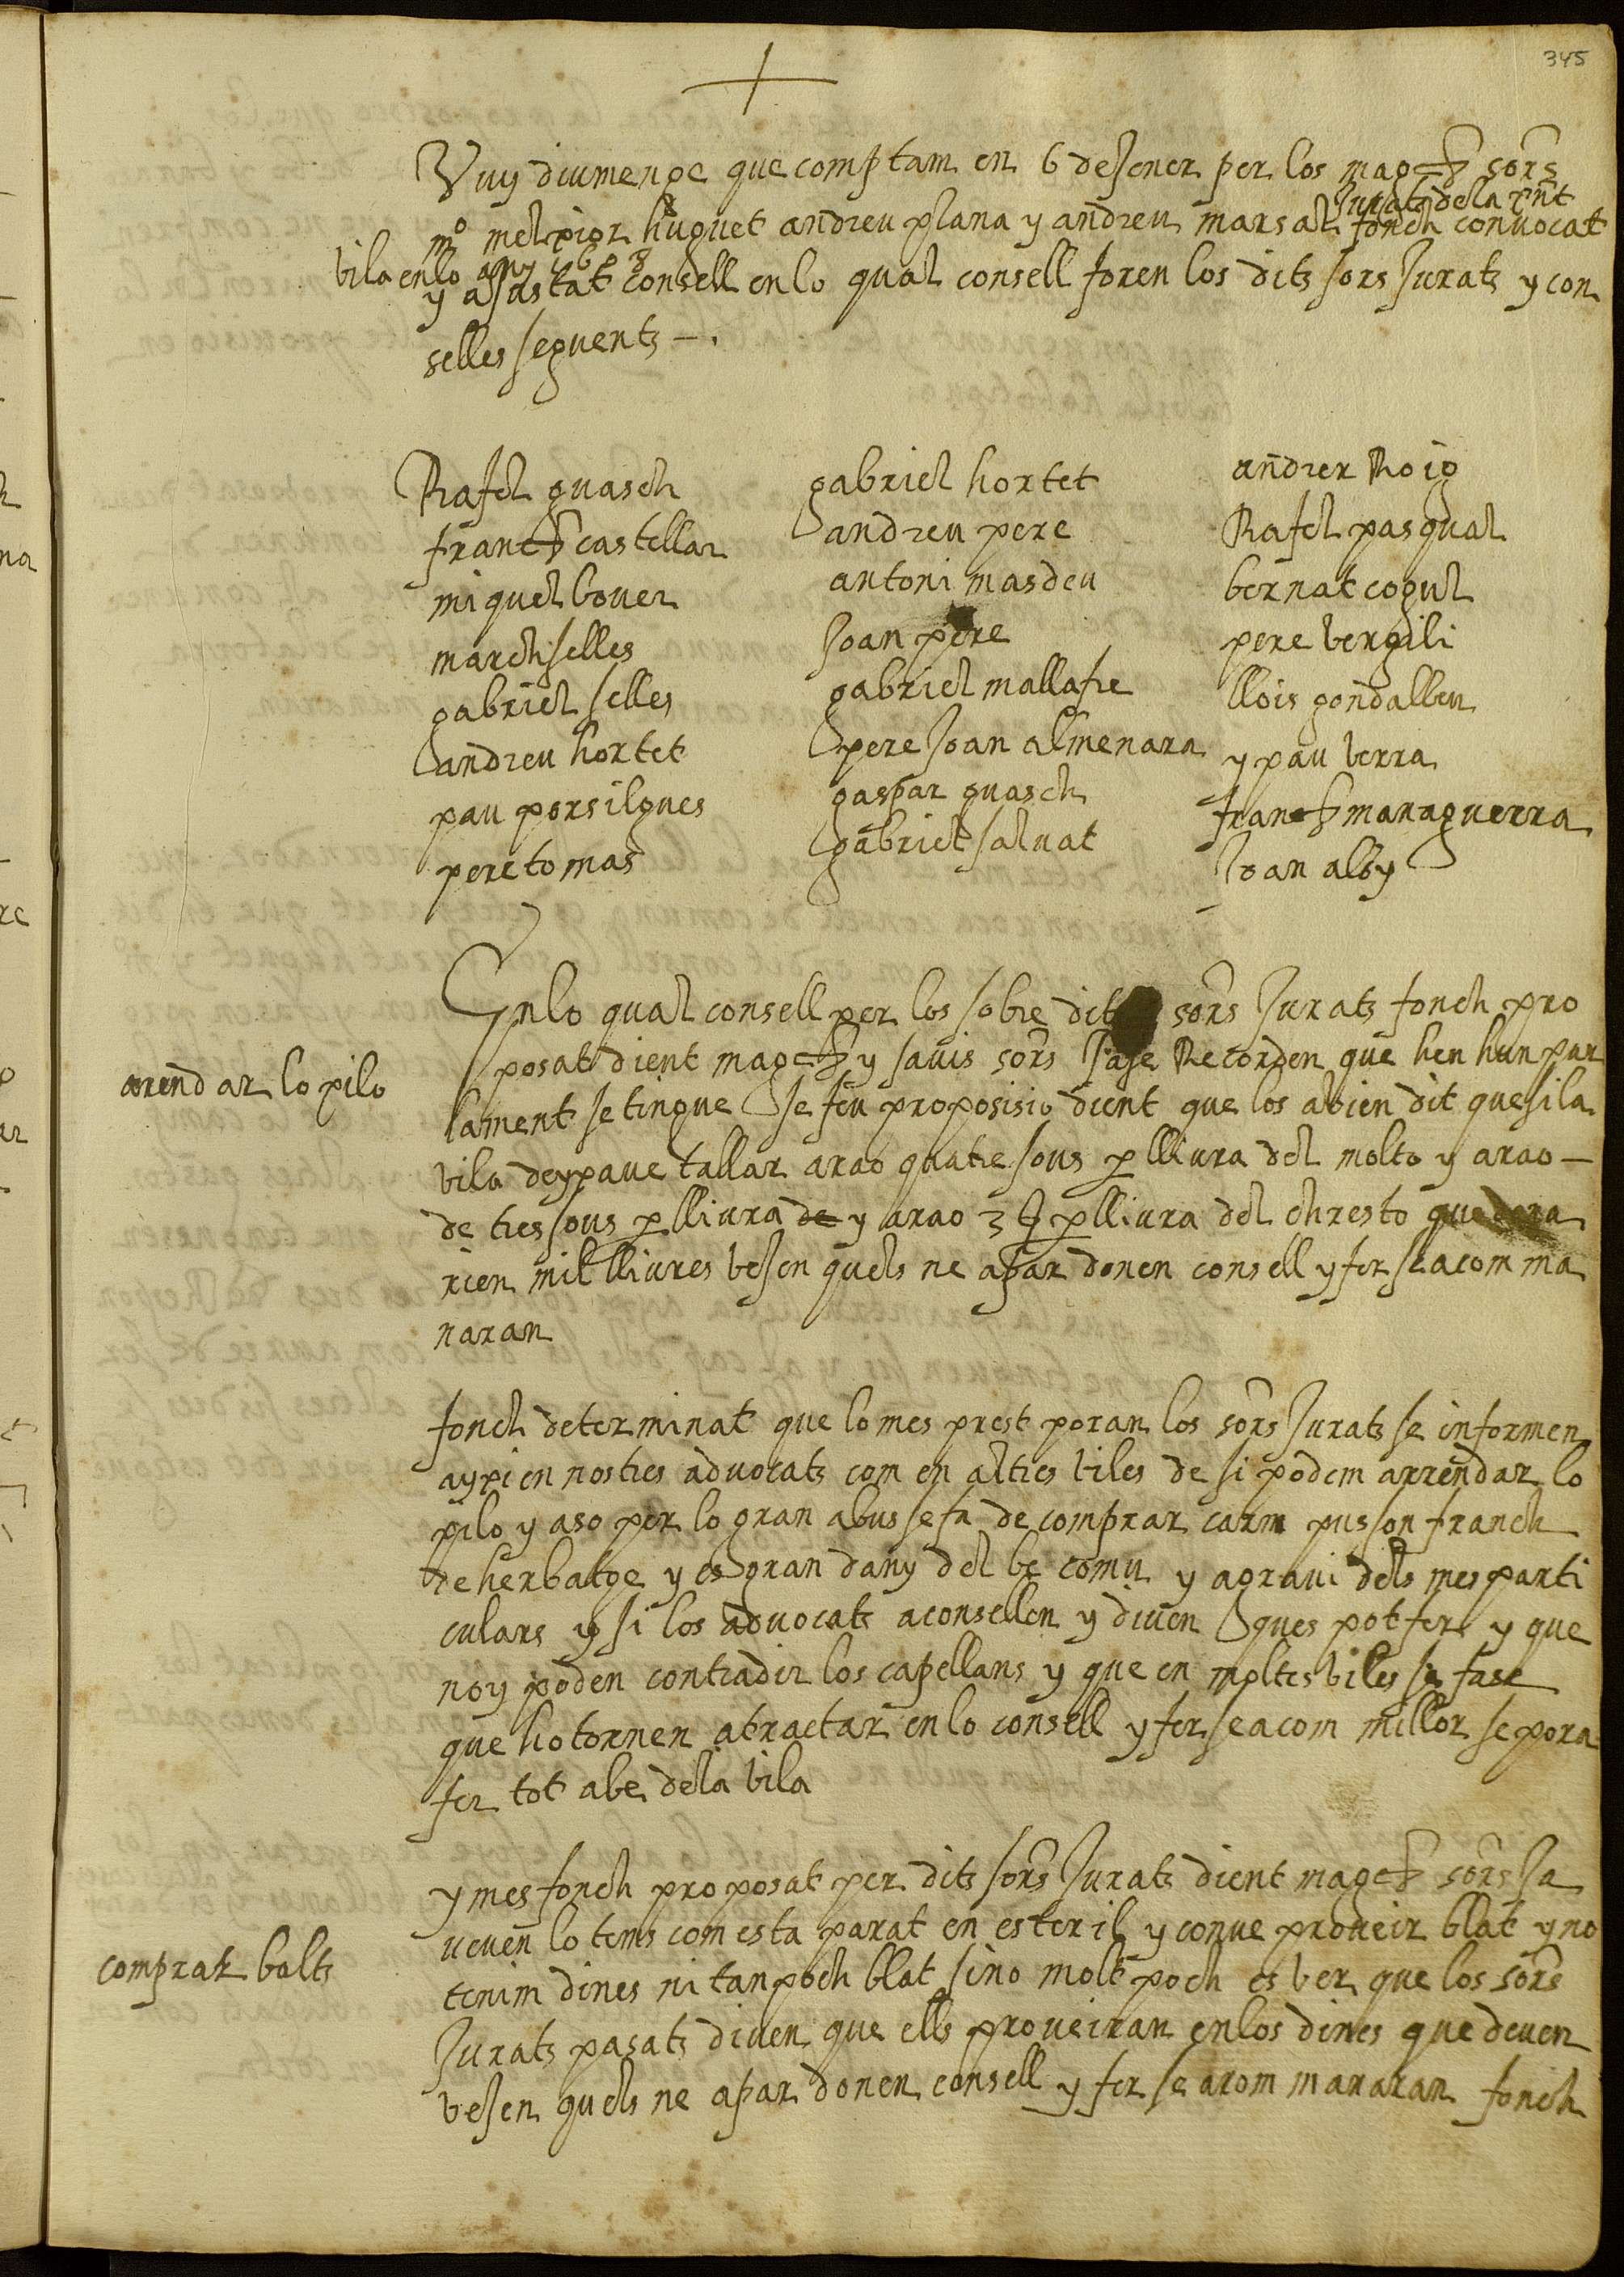 345
Vuy diumenge que comptam en 6 de Jener per los magchs sors
Jurats de la pnt
mo melpior huguet andreu plana y andreu marsal fonch convocat
vila en lo any
y aJustat consell en lo qual consell foren los dits sors Jurats y con
selles seguents —.
Rafel guasch
franch castellar
miquel bover
march selles
gabriel selles
andreu hortet
pau porsilgues
pere tomas
gabriel hortet
andreu pere
antoni masdeu
Joan pere
gabriel mallafre
pere Joan almenara
gaspar guasch
gabriel salvat
andreu Roig
Rafel pasqual
bernat cogul
pere bergili
llois gondalbeu
y pau berra
franch managuerra
Joan alby
En lo qual consell per los sobre dits sors Jurats fonch pro
arendar lo pilo
posat dient magchs y savis sors Ja se Recorden que hen hun par
lament se tingue se feu proposisio dient que los abien dit que si la
vila deypave tallar a rao quatre sous per lliura del molto y a rao —
de tres sous per lliura de y a rao 3 ss per lliura del chresto que dona
rien mil lliures veJen quels ne apar donen consell y fer sea com ma
naran
fonch determinat que lo mes prest poran los sors Jurats se informen
aypi en nostres advocats com en altres viles de si podem arrendar lo
pilo y aso per lo gran abus se fa de comprar carn pus son franch
de herbatge y es gran dany del be comu y agravi dels mes parti
culars y si los advocats aconsellen y diuen ques pot fer y que
noy poden contradir los capellans y que en moltes viles se fase
que ho tornen a tractar en lo consell y fer sea com millor se pora
fer tot a be de la vila
y mes fonch proposat per dits sors Jurats dient magchs sors Ja
veuen lo tems com esta parat en esteril y conve proveir blat y no
comprar balts
tenim dines ni tanpoch blat sino molt poch es ver que los sors
Jurats pasats diuen que ells proveiran en los dines que deuen
veJen quels ne apar donen consell y fer se a com manaran fonch